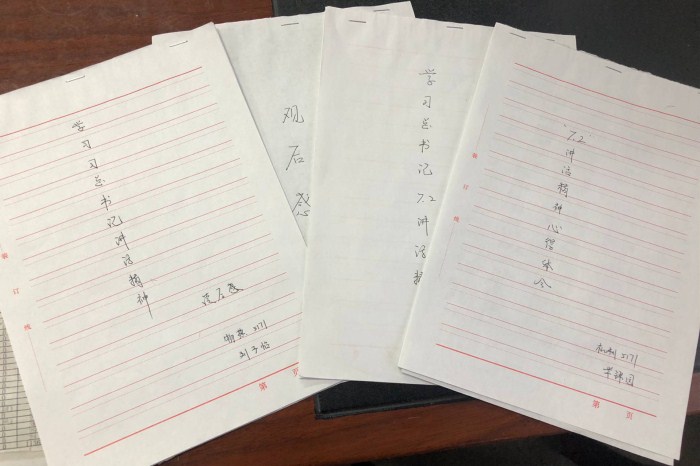 学习习总书记讲话精神
读后感
2171
装
订
线
第 页
观后感
学习总书记7.2讲话精
"7.2讲话精神心得体会
机制2171
装
订
线
第 页